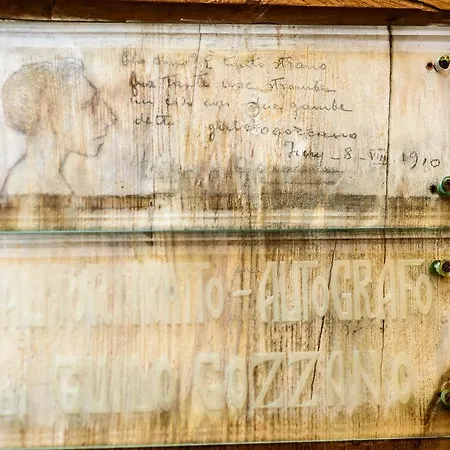 Chi sono? È tanto strano
fra tante cose strambe
un coso con due gambe
detto guidogozzano
Fiery - 8 - VIII 1910
AUTORITRATTO - AUTOGRAFO
DI GUIDO GOZZANO